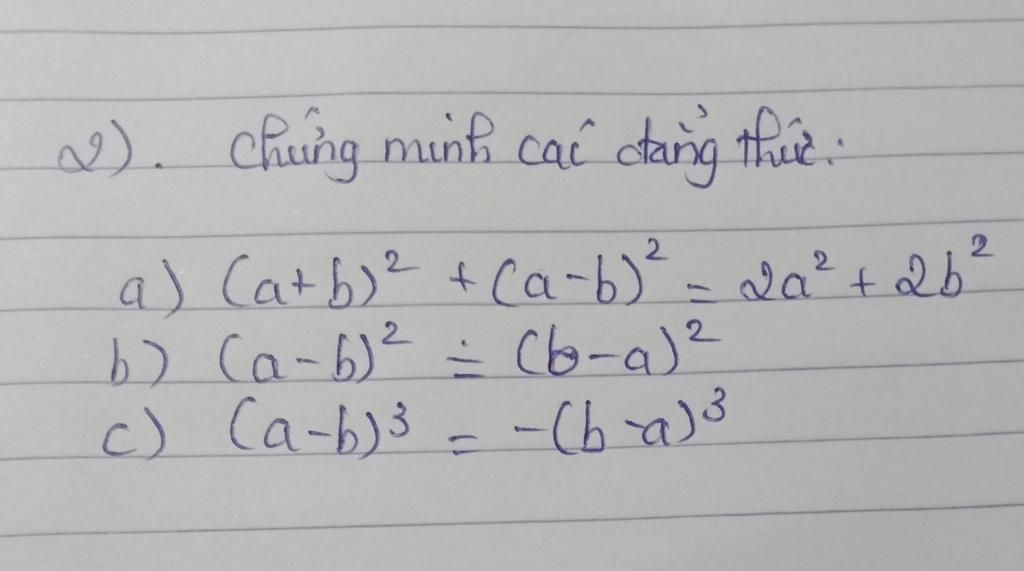 2). Chứng minh các đẳng thức:
a) (a+b)² + (a-b)² = 2a² + 2b²
b) (a-b)² = (b-a)²
c) (a-b)³ = -(b-a)³